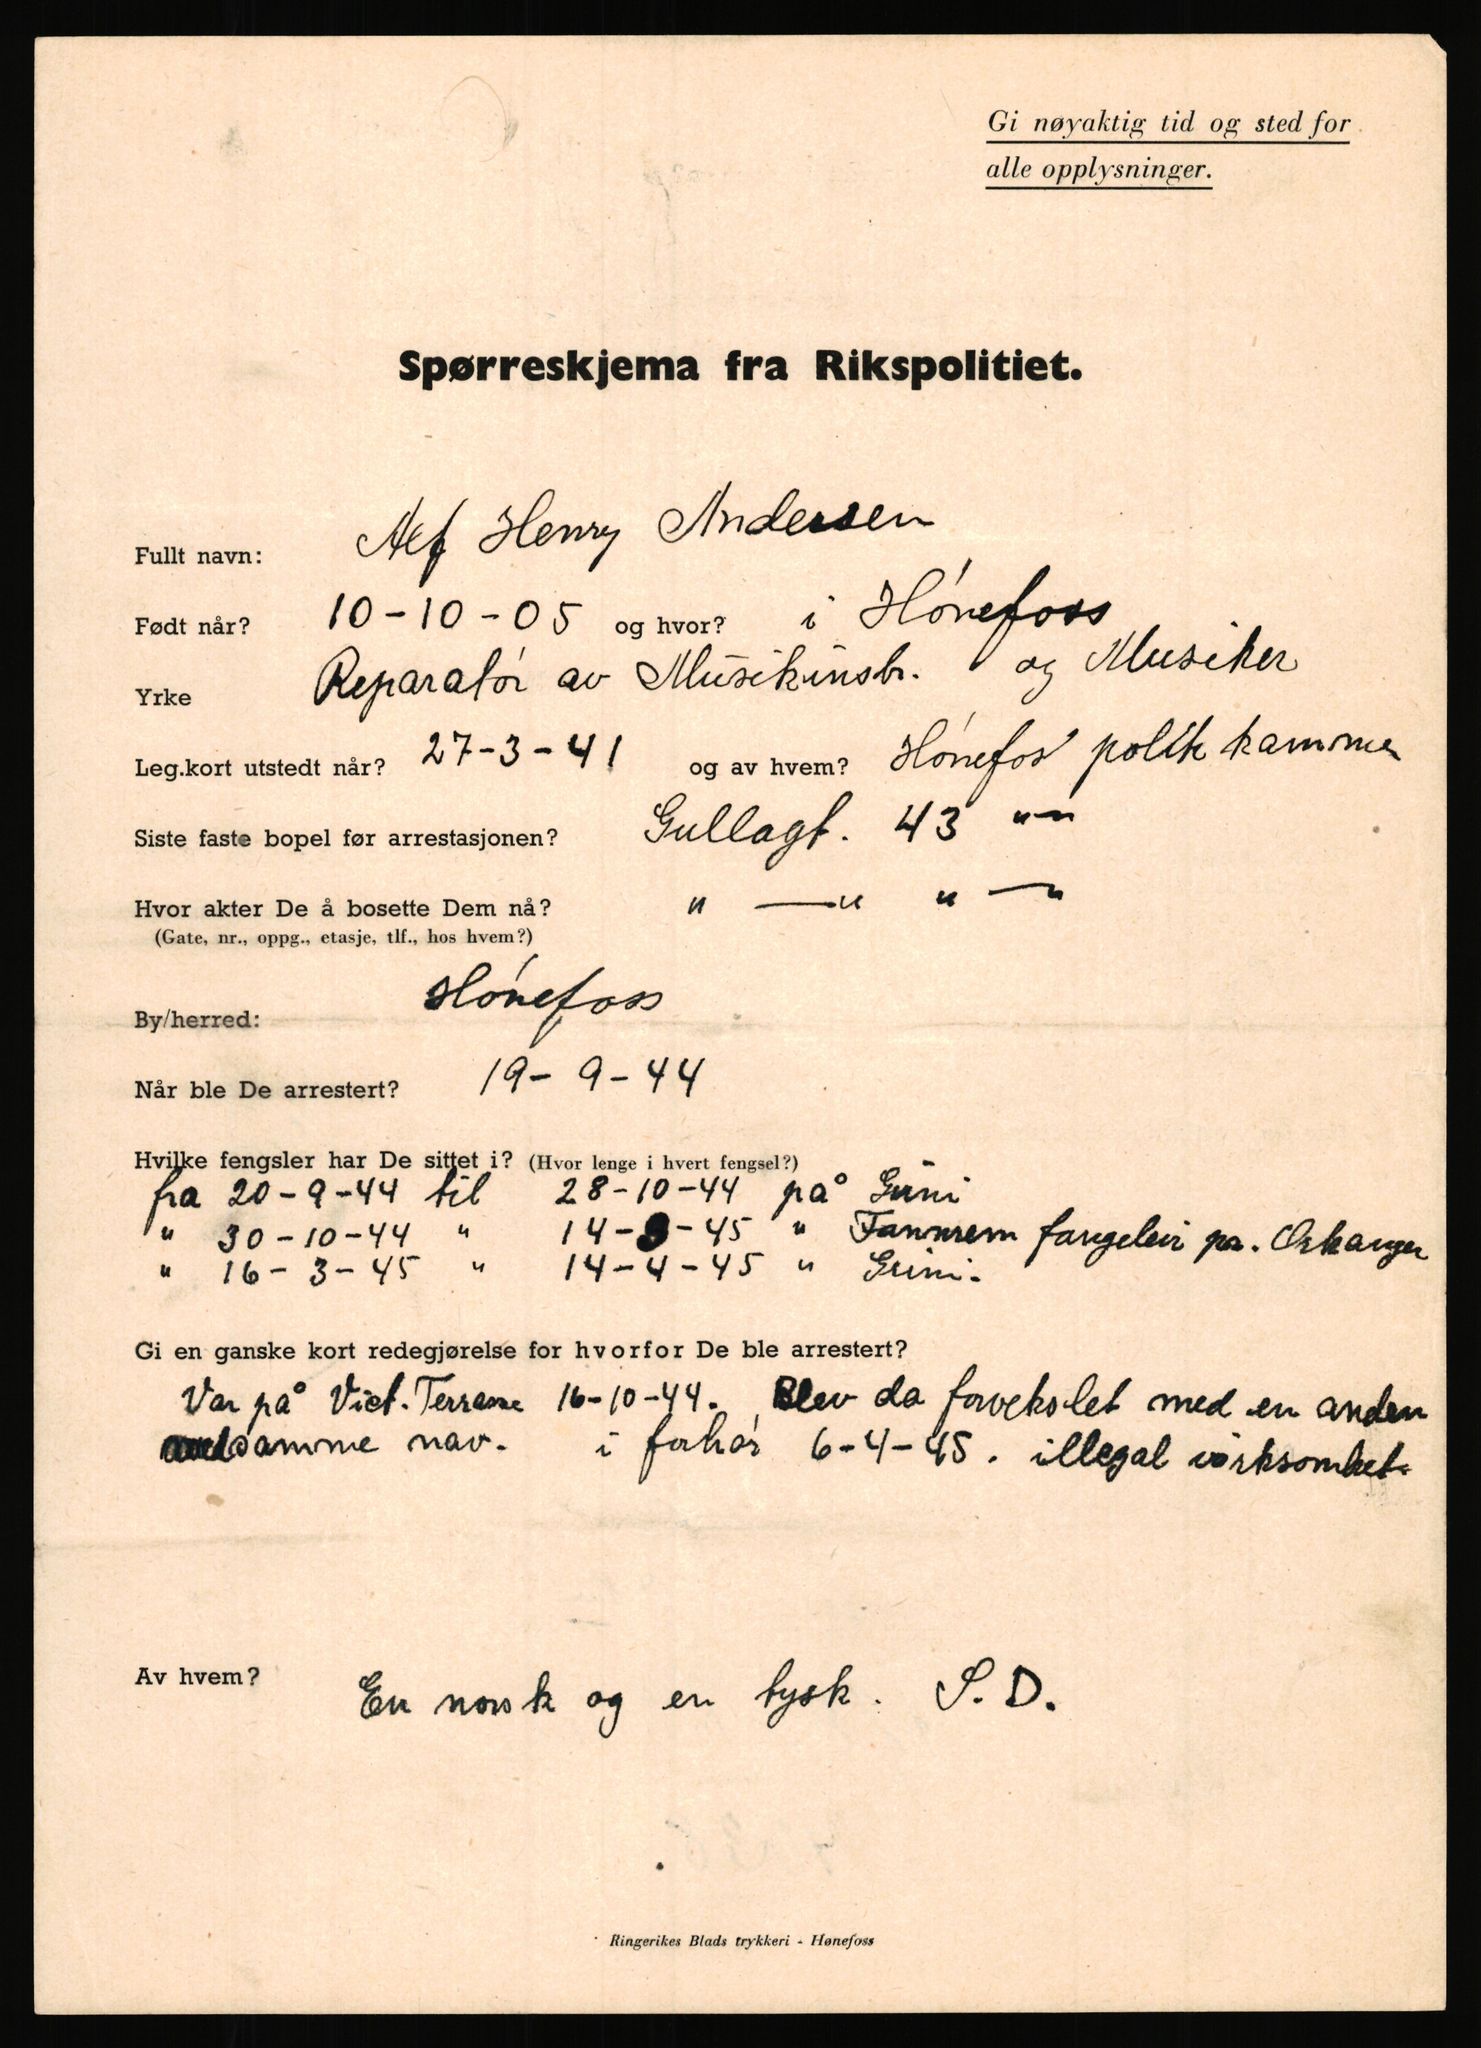 Gi nøyaktig tid og sted for
alle opplysninger.
Spørreskjema fra Rikspolitiet.
Fullt navn: Alf Henry Andersen
Født når? 10-10-05 og hvor? i Hónefoss
Yrke Reparatór av Musikinstr. og Musiker
Leg.kort utstedt når? 27-3-41 og av hvem? Hónefos politk kammer
Siste faste bopel før arrestasjonen? Gullagt. 43 "—"
Hvor akter De å bosette Dem nå? " — " " — "
(Gate, nr., oppg., etasje, tlf., hos hvem?)
By/herred: Hónefoss
Når ble De arrestert? 19-9-44
Hvilke fengsler har De sittet i? (Hvor lenge i hvert fengsel?)
fra 20-9-44 til 28-10-44 på Grini
" 30-10-44 " 14-3-45 " Fannrem fangeleir pr. Orkanger
" 16-3-45 " 14-4-45 " Grini.
Gi en ganske kort redegjørelse for hvorfor De ble arrestert?
Var på Vict. Terrasse 16-10-44. Blev da forvekslet med en anden
samme nav. i forhór 6-4-45. illegal virksomhet.
Av hvem? En norsk og en tysk. S.D.
Ringerikes Blads trykkeri - Hønefoss